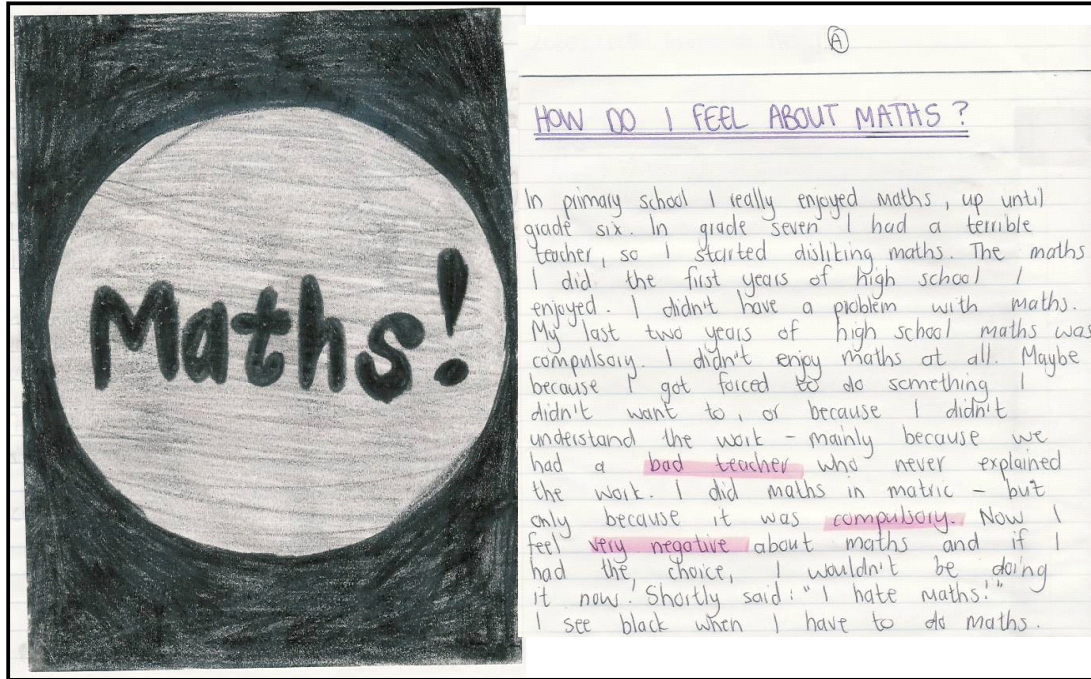 Maths!
A
HOW DO I FEEL ABOUT MATHS?
In primary school I really enjoyed maths, up until
grade six. In grade seven I had a terrible
teacher, so I started disliking maths. The maths
I did the first years of high school I
enjoyed. I didn't have a problem with maths.
My last two years of high school maths was
compulsory. I didn't enjoy maths at all. Maybe
because I got forced to do something I
didn't want to, or because I didn't
understand the work - mainly because we
had a bad teacher who never explained
the work. I did maths in matric - but
only because it was compulsory. Now I
feel very negative about maths and if I
had the, choice, I wouldn't be doing
it now! Shortly said: "I hate maths!"
I see black when I have to do maths.